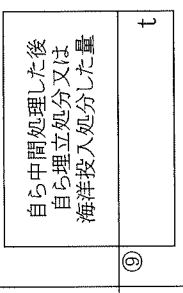 自ら中間処理した後
自ら埋立処分又は
海洋投入処分した量
⑨
t